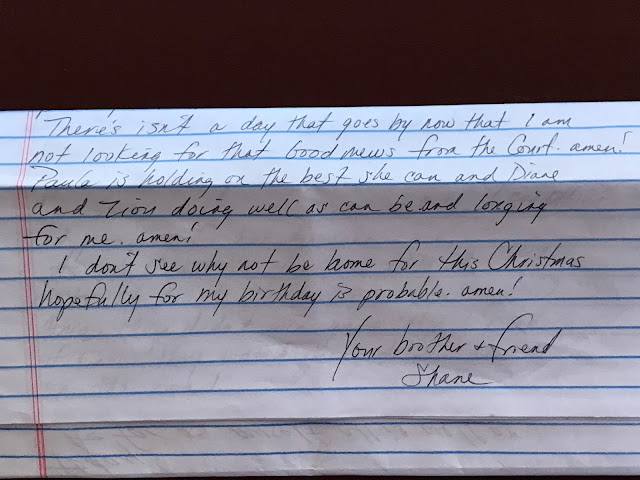 There's isn't a day that goes by now that I am
not looking for that Good news from the Court. amen!
Paula is holding on the best she can and Diane
and Zion doing well as can be and longing
for me. amen!
I don't see why not be home for this Christmas
hopefully for my birthday is probable. amen!
Your brother + friend
Shane